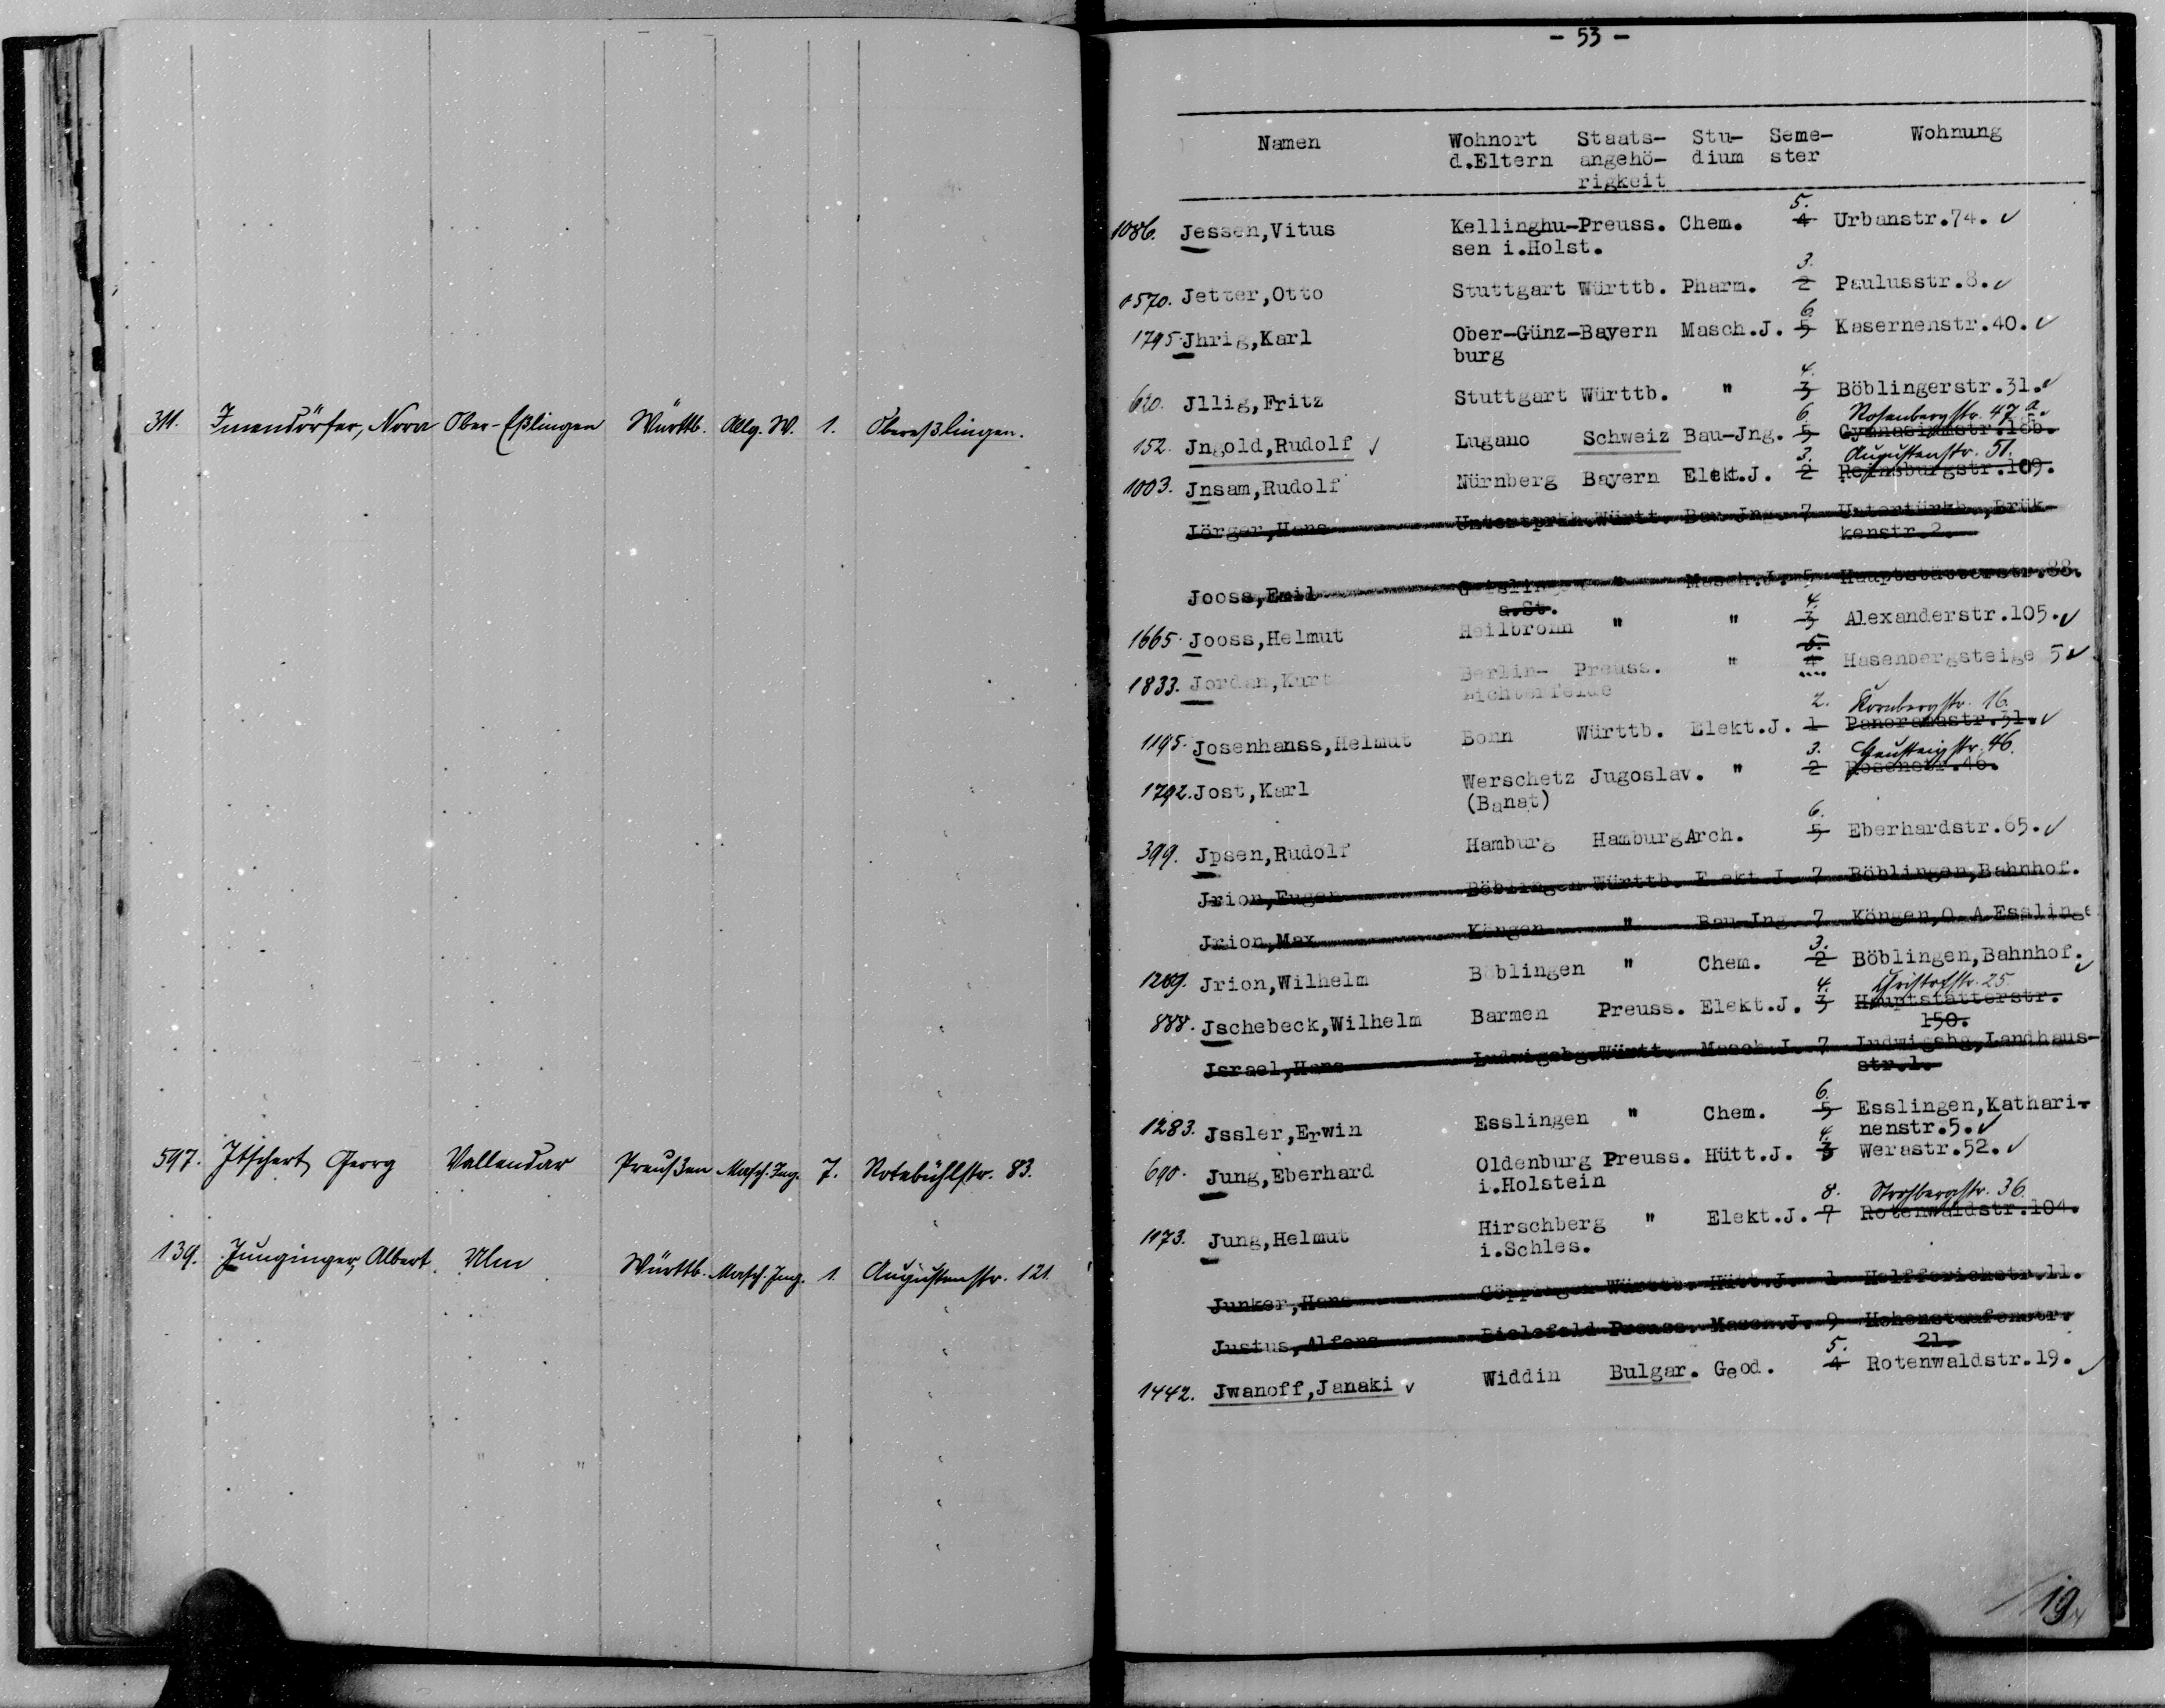 311. Imendörfer, Nora Ober-Eßlingen Württb. Allg. W. 1. Obereßlingen.
597. Itschert, Georg Vallendar Preußen Masch. Ing. 7. Rotebühlstr. 83.
139. Junginger, Albert Ulm Württb. Masch. Ing. 1. Augustenstr. 121.
- 53 -
Namen Wohnort Staats- Stu- Seme- Wohnung
d.Eltern angehö- dium ster
rigkeit
5.
1086. Jessen,Vitus Kellinghu-Preuss. Chem. 4 Urbanstr.74. ✓
sen i.Holst.
3.
1570. Jetter,Otto Stuttgart Württb. Pharm. 2 Paulusstr.8. ✓
6
1795. Jhrig,Karl Ober-Günz-Bayern Masch.J. 5 Kasernenstr.40. ✓
burg
4.
620. Jllig,Fritz Stuttgart Württb. " 3 Böblingerstr.31. ✓
6. Rosenbergstr. 47 a.
152. Jngold,Rudolf ✓ Lugano Schweiz Bau-Jng. 5 Gymnasiumstr.18b.
3. Augustenstr. 51.
1003. Jnsam,Rudolf Nürnberg Bayern Elekt.J. 2 Reinsburgstr.109.
Jörger,Hans Untertprkh.Württ. Bau-Jng. 7 Untertürkh.,Brük-
kenstr.2.
Jooss,Emil Geislingen " Masch.J. 5 Hauptstätterstr.88.
a.St.
4.
1665. Jooss,Helmut Heilbronn " " 3 Alexanderstr.105. ✓
5.
1833. Jordan,Kurt Berlin- Preuss. " 4 Hasenbergsteige 5 ✓
Lichterfelde
2. Kornbergstr. 16.
1195. Josenhanss,Helmut Bonn Württb. Elekt.J. 1 Panoramastr.31. ✓
3. 46.
1792. Jost,Karl Werschetz Jugoslav. " 2 Rosenstr.46.
(Banat)
6.
399. Jpsen,Rudolf Hamburg Hamburg Arch. 5 Eberhardstr.65. ✓
Jrion,Eugen Böblingen Württb. Elekt.J. 7 Böblingen,Bahnhof.
Jrion,Max Köngen " Bau-Jng. 7 Köngen,O.A.Esslinge
3.
1269. Jrion,Wilhelm Böblingen " Chem. 2 Böblingen,Bahnhof. ✓
4. Christofstr. 25.
888. Jschebeck,Wilhelm Barmen Preuss. Elekt.J. 3 Hauptstätterstr.
150.
Jsrael,Hans Ludwigsbg.Württ. Masch.J. 7 Ludwigsbg,Landhaus-
str.1.
6.
1283. Jssler,Erwin Esslingen " Chem. 5 Esslingen,Kathari-
nenstr.5. ✓
4.
690. Jung,Eberhard Oldenburg Preuss. Hütt.J. 3 Werastr.52. ✓
i.Holstein
8. 36.
1173. Jung,Helmut Hirschberg " Elekt.J. 7 Rotenwaldstr.104.
i.Schles.
Junker,Hans Göppingen Württb. Hütt.J. 1 Helfferichstr.11.
Justus,Alfons Bielefeld Preuss. Masch.J. 9 Hohenstaufenstr.
21.
5.
1442. Jwanoff,Janaki ✓ Widdin Bulgar. Geod. 4 Rotenwaldstr.19. ✓
19